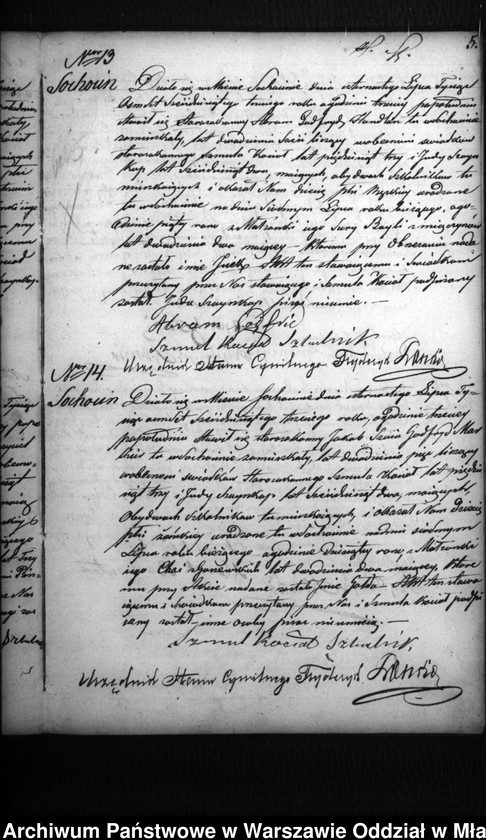 5.
Nro 13
Sochocin
Działo się w Mieście Sochocinie dnia czternastego Lipca Tysiąc
Ośmset Sześćdziesiątego trzeciego roku o godzinie trzeciej popołudniu
stawił się Starozakonny Abram Godfryd, Handlarz tu w Sochocinie
zamieszkały, lat dwadzieścia sześć liczący w obecności świadków
starozakonnego Szmula Kaciał lat pięćdziesiąt trzy i Judy Szayn
kop lat Sześćdziesiąt dwa, mających, obydwóch Szkolników tu
mieszkających i okazał Nam dziecię płci Męzkiej urodzone
tu w Sochocinie na dniu Siódmym Lipca roku bieżącego, o go
dzinie piąty rano z Małżonki jego Sury Rayli z
lat dwadzieścia dwa mającej. Któremu przy Obrzezaniu nada
ne zostało imie Jusek. Akt ten stawaiącemu i Świadkom
przeczytany przez Nas stawaiącego i Szmula Kaciał podpisany
został. Juda Szaynkop pisać nieumie. —
Abram
Szmul Kaciał Szkulnik
Urzędnik Stanu Cywilnego Fryderyk
Nro 14.
Sochocin
Działo się w Mieście Sochocinie dnia czternastego Lipca Ty-
siąc ośmset Sześćdziesiątego trzeciego roku, o godzinie trzeciej
popołudniu Stawił się starozakonny Jakob Szaia Godfryd
tu w Sochocinie zamieszkały, lat dwadzieścia pięć liczący
w obecności świadków Starozakonnego Szmula Kaciał lat pięćdzie
siąt trzy i Judy Szaynkop lat Sześćdziesiąt dwa, mających,
Obydwóch Szkolników tu mieszkających i okazał Nam dziecię
płci żeńskiej urodzone tu w Sochocinie na dniu siódmym
Lipca roku bieżącego o godzinie Dziesiąty rano z Małżonki
jego Chai lat dwadzieścia dwa mającej, Które
mu przy Akcie nadane zostało Jmie Golda. Akt ten stawa
iącemu i Świadkom przeczytany przez Nas i Szmula Kaciał podpi
sany został inne osoby pisać nieumieją. —
Szmul Kaciał Szkulnik.
Urzędnik Stanu Cywilnego Fryderyk
Archiwum Państwowe w Warszawie Oddział w Mła